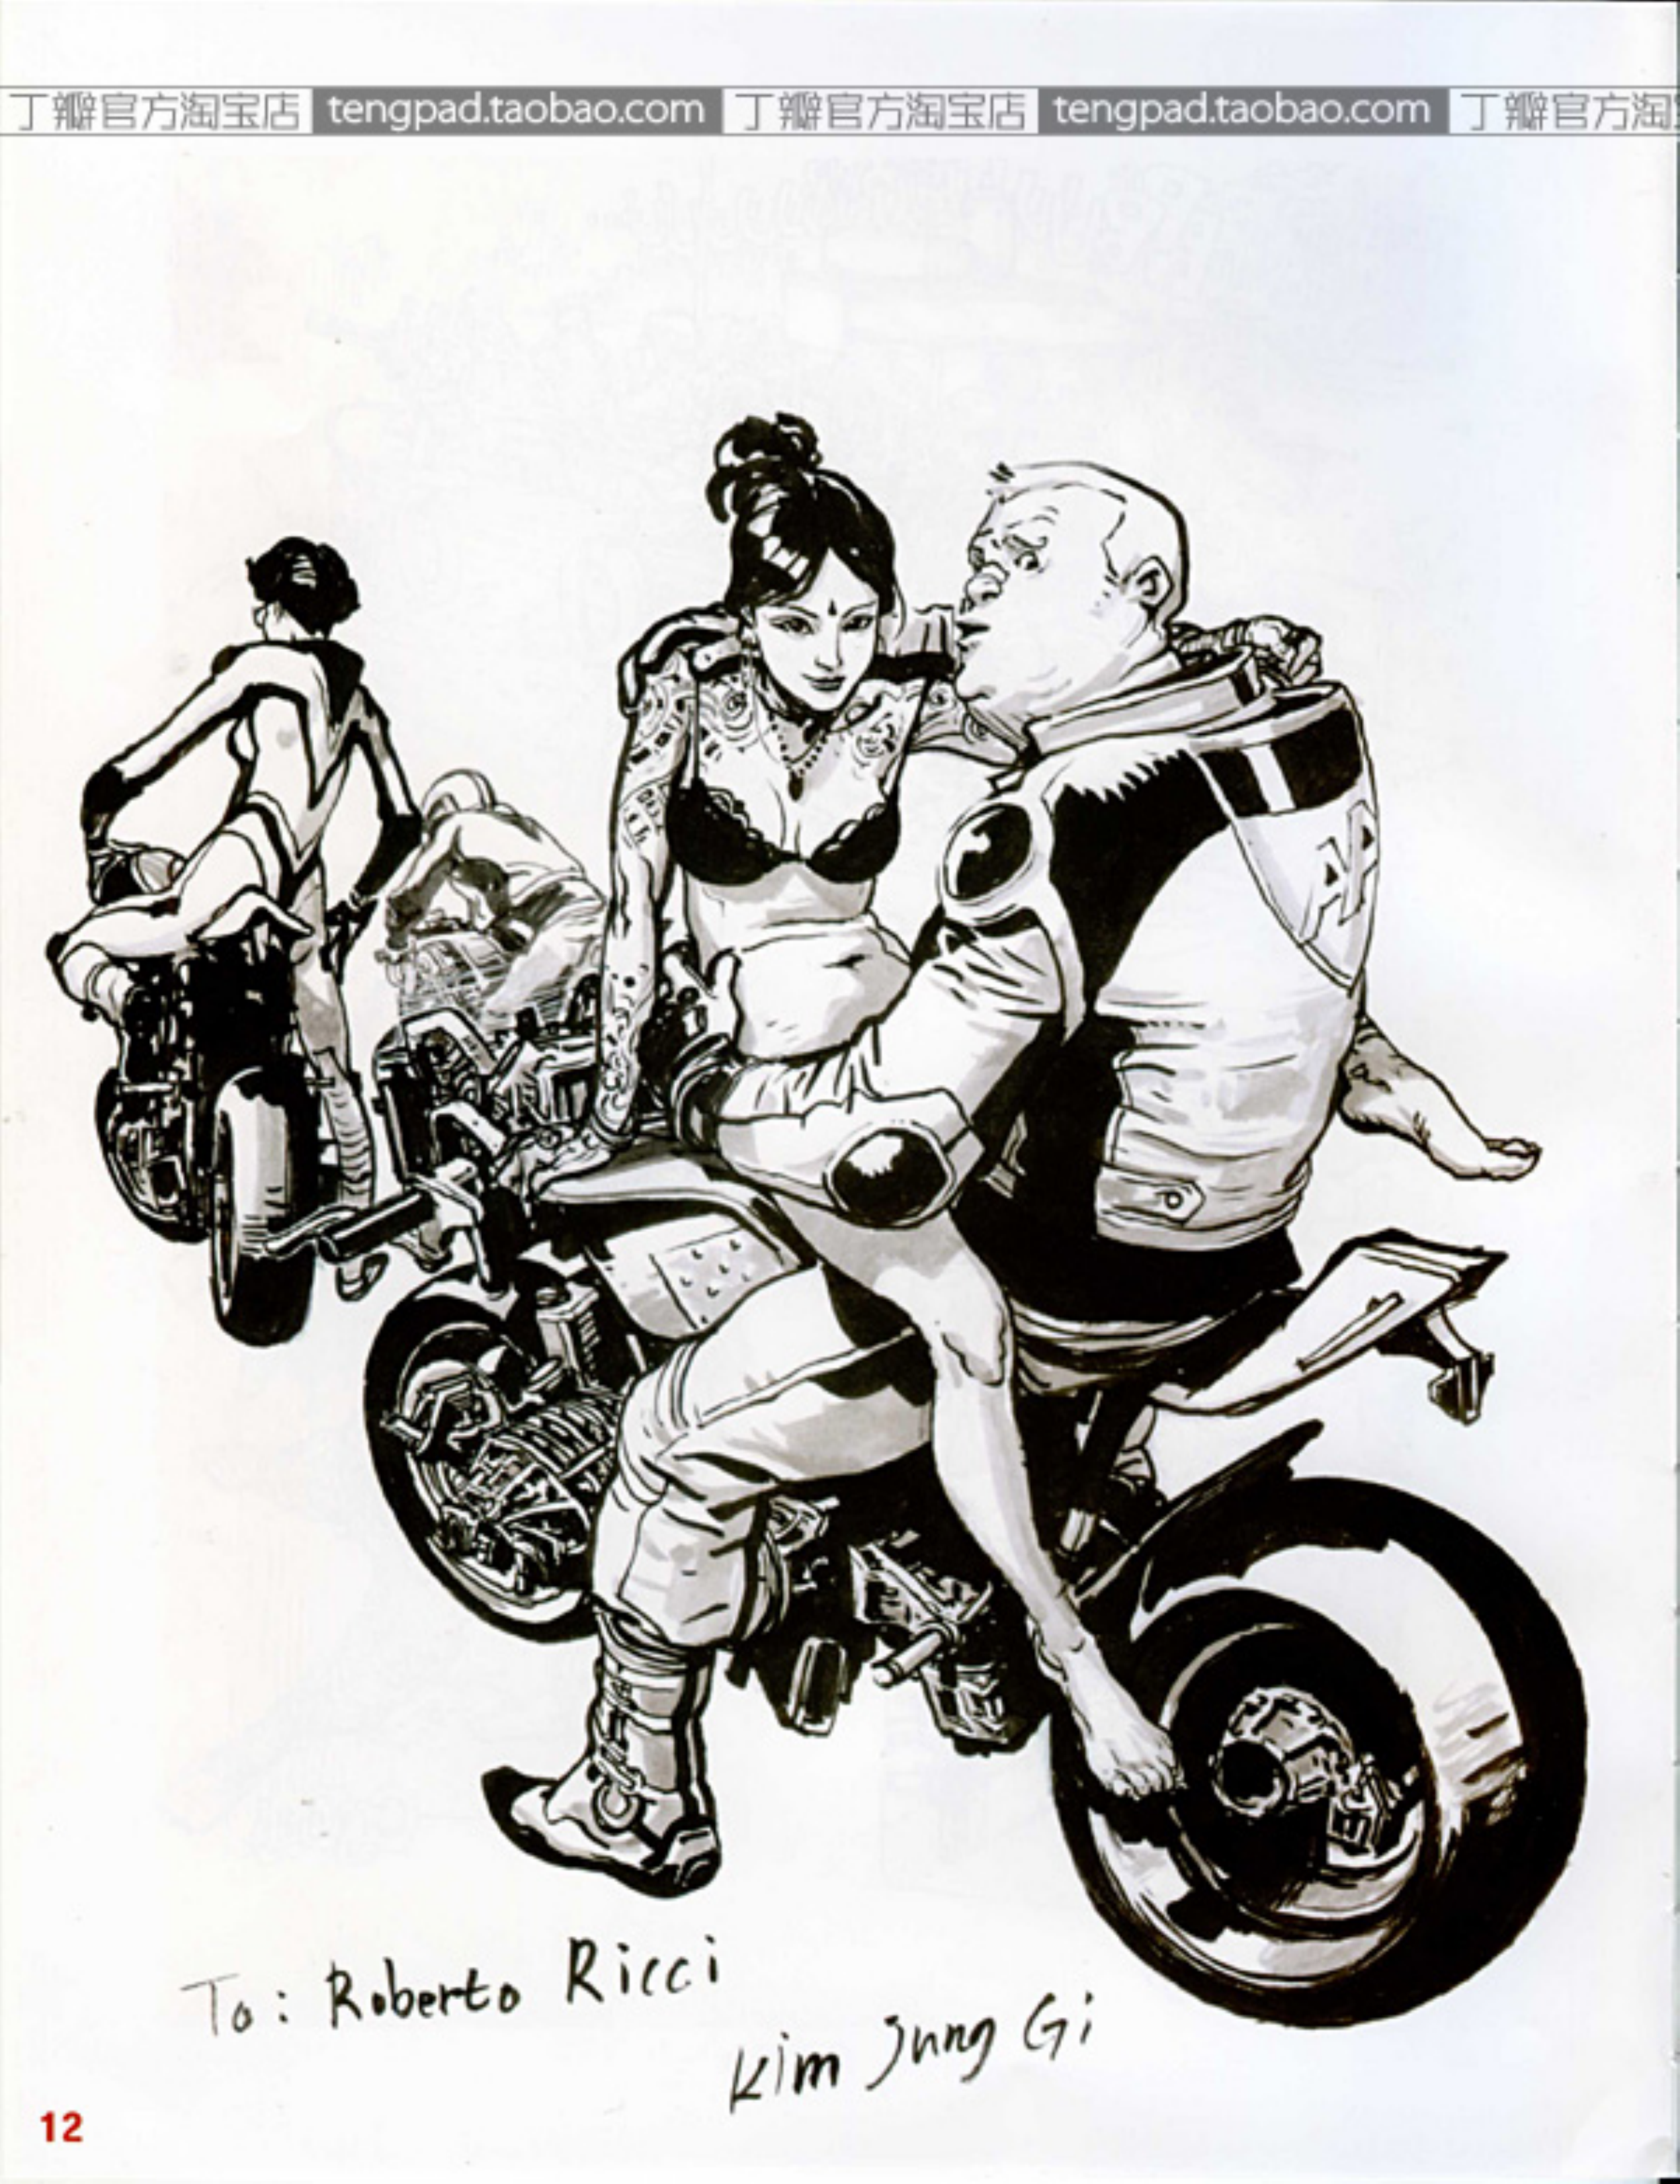 丁瓣官方淘宝店 tengpad.taobao.com 丁瓣官方淘宝店 tengpad.taobao.com 丁瓣官方淘
AA
To: Roberto Ricci
Kim Jung Gi
12